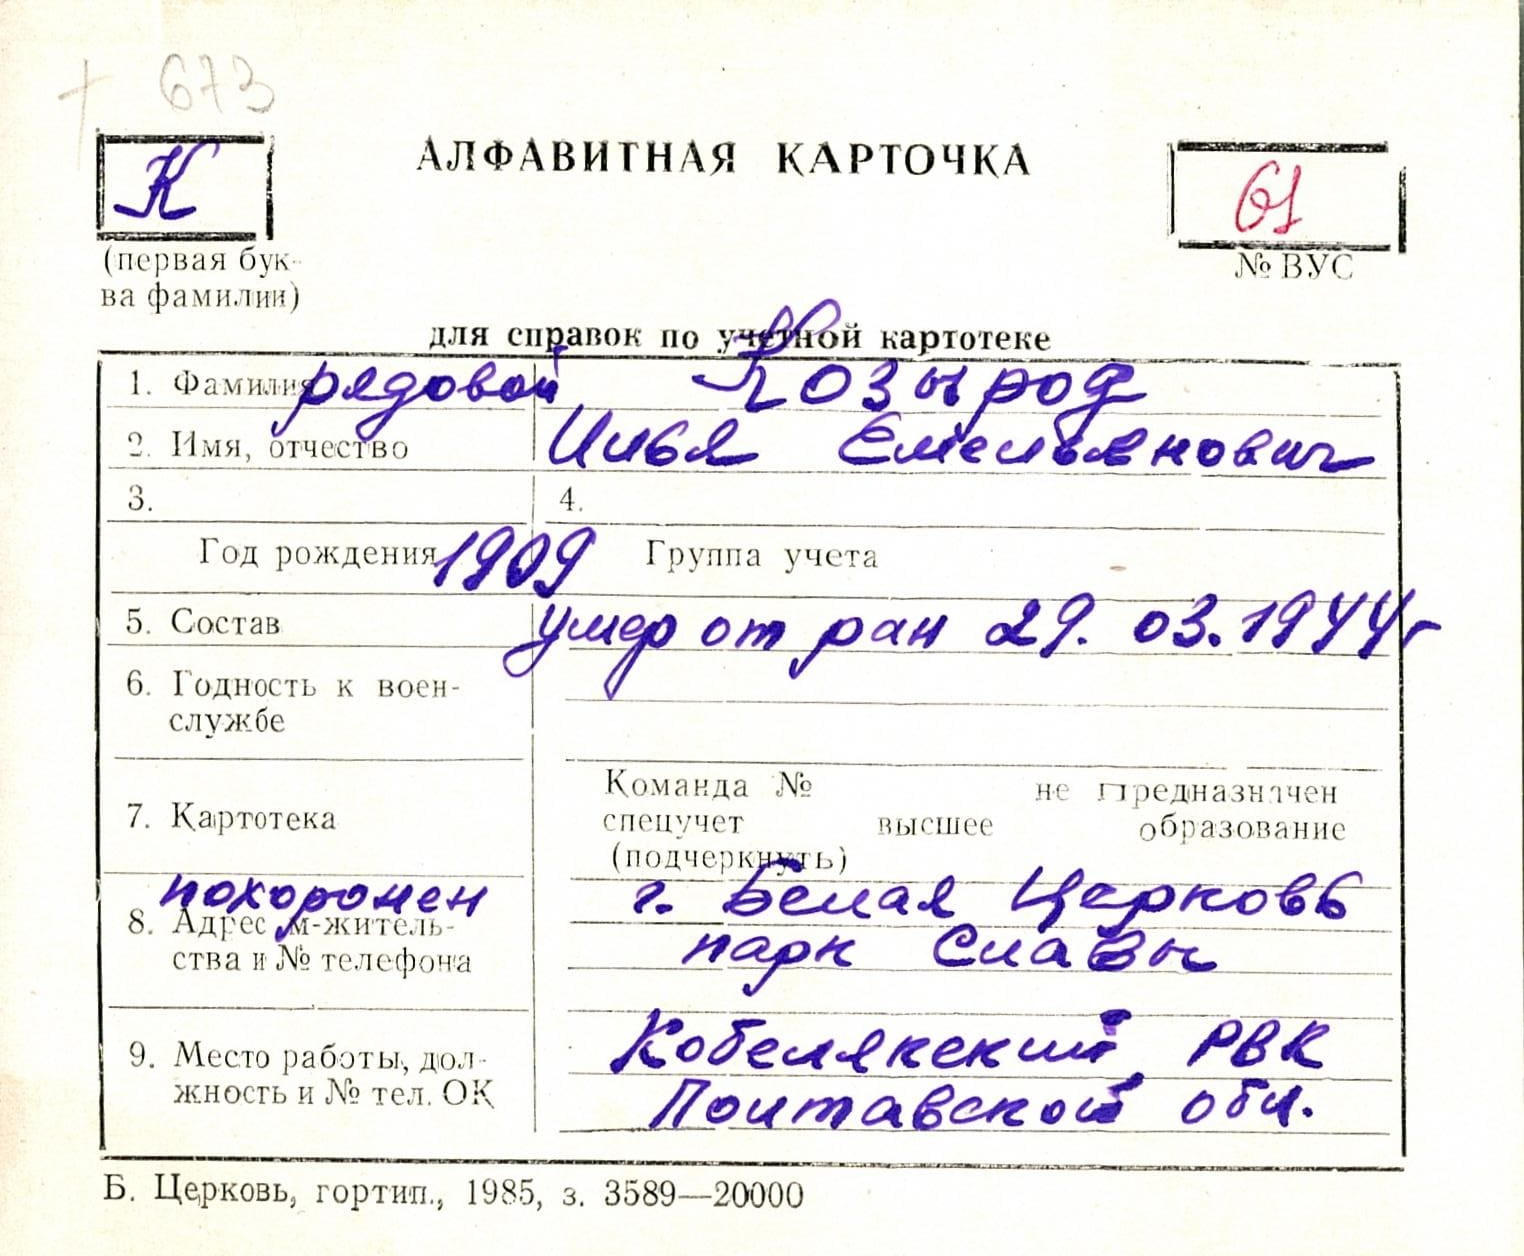 + 673
К
АЛФАВИТНАЯ КАРТОЧКА
61
(первая бук-
ва фамилии)
№ ВУС
для справок по учетной картотеке
1. Фамилия рядовой Козырод
2. Имя, отчество Илья Емельянович
3. 4.
Год рождения 1909 Группа учета
5. Состав умер от ран 29. 03. 1944 г
6. Годность к воен-
службе
7. Картотека
Команда № не предназначен
спецучет высшее образование
(подчеркнуть)
похоронен г. Белая Церковь
8. Адрес м-житель-
ства и № телефона
парк Славы
9. Место работы, дол-
жность и № тел. ОК
Кобелякский РВК
Полтавской обл.
Б. Церковь, гортип., 1985, з. 3589—20000